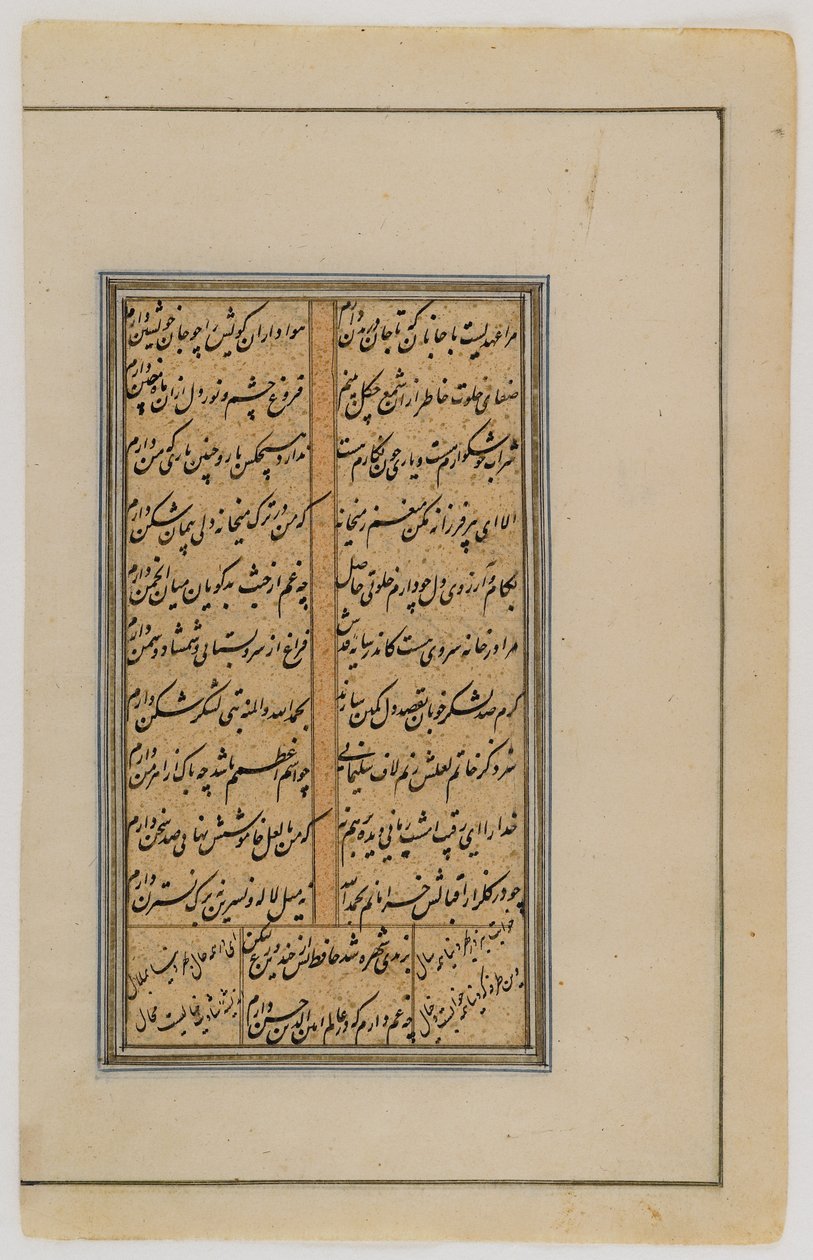 مرا عهدیست با جانان که تا جان در بدن دارم هواداران کویش را چو جان خویشتن دارم
صفای خلوت خاطر از آن شمع چگل بینم فروغ چشم و نور دل از آن ماه ختن دارم
شراب خوشگوارم هست و یاری چون نگارم هست ندارد هیچکس یار و چنین یاری که من دارم
الا ای پیر فرزانه مکن منعم ز میخانه که من در ترک میخانه دلی پیمان شکن دارم
بکام و آرزوی دل چو دارم خلوتی حاصل چه غم از خبث بدگویان میان انجمن دارم
مرا در خانه سروی هست کاندر سایه قدش فراغ از سرو بستانی و شمشاد و سمن دارم
گرم صد لشکر خوبان بقصد دل کمین سازند بحمد الله والمنه بتی لشکر شکن دارم
سزد کز خاتم لعلش زنم لاف سلیمانی چو اسم اعظمم باشد چه باک از اهرمن دارم
خدا را ای رقیب امشب زمانی دیده بر هم نه که من با لعل خاموشش نهانی صد سخن دارم
چو در گلزار اقبالش خرامانم بحمد الله نه میل لاله و نسرین نه برگ نسترن دارم
برندی شهره شد حافظ پس از چندین ورع لیکن
چه غم دارم که در عالم امین الدین حسن دارم
ای در همه حال
اندیشه شادیت خیالیست محال
همه سال
وین طرفه که دنیا همه خوابیست و خیال